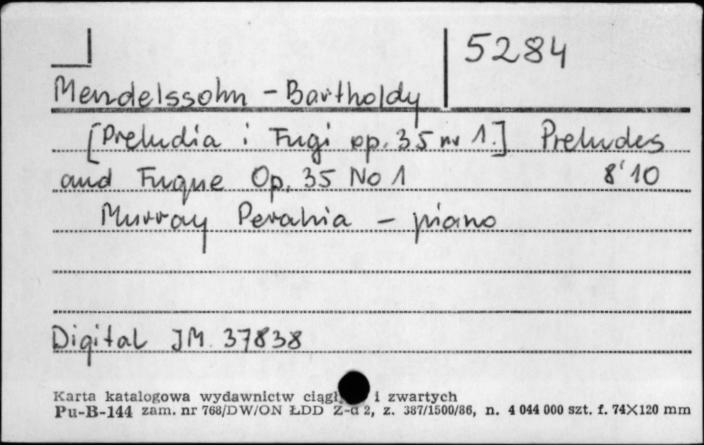 5284
Mendelssohn - Bartholdy
[Preludia i Fugi op. 35 nr 1.] Preludes
and Fugue Op. 35 No 1 8'10
Murray Perahia - piano
Digital JM. 37838
Karta katalogowa wydawnictw i zwartych
Pu-B-144 zam. nr 768/DW/ON ŁDD 2, z. 387/1500/86, n. 4 044 000 szt. f. 74×120 mm